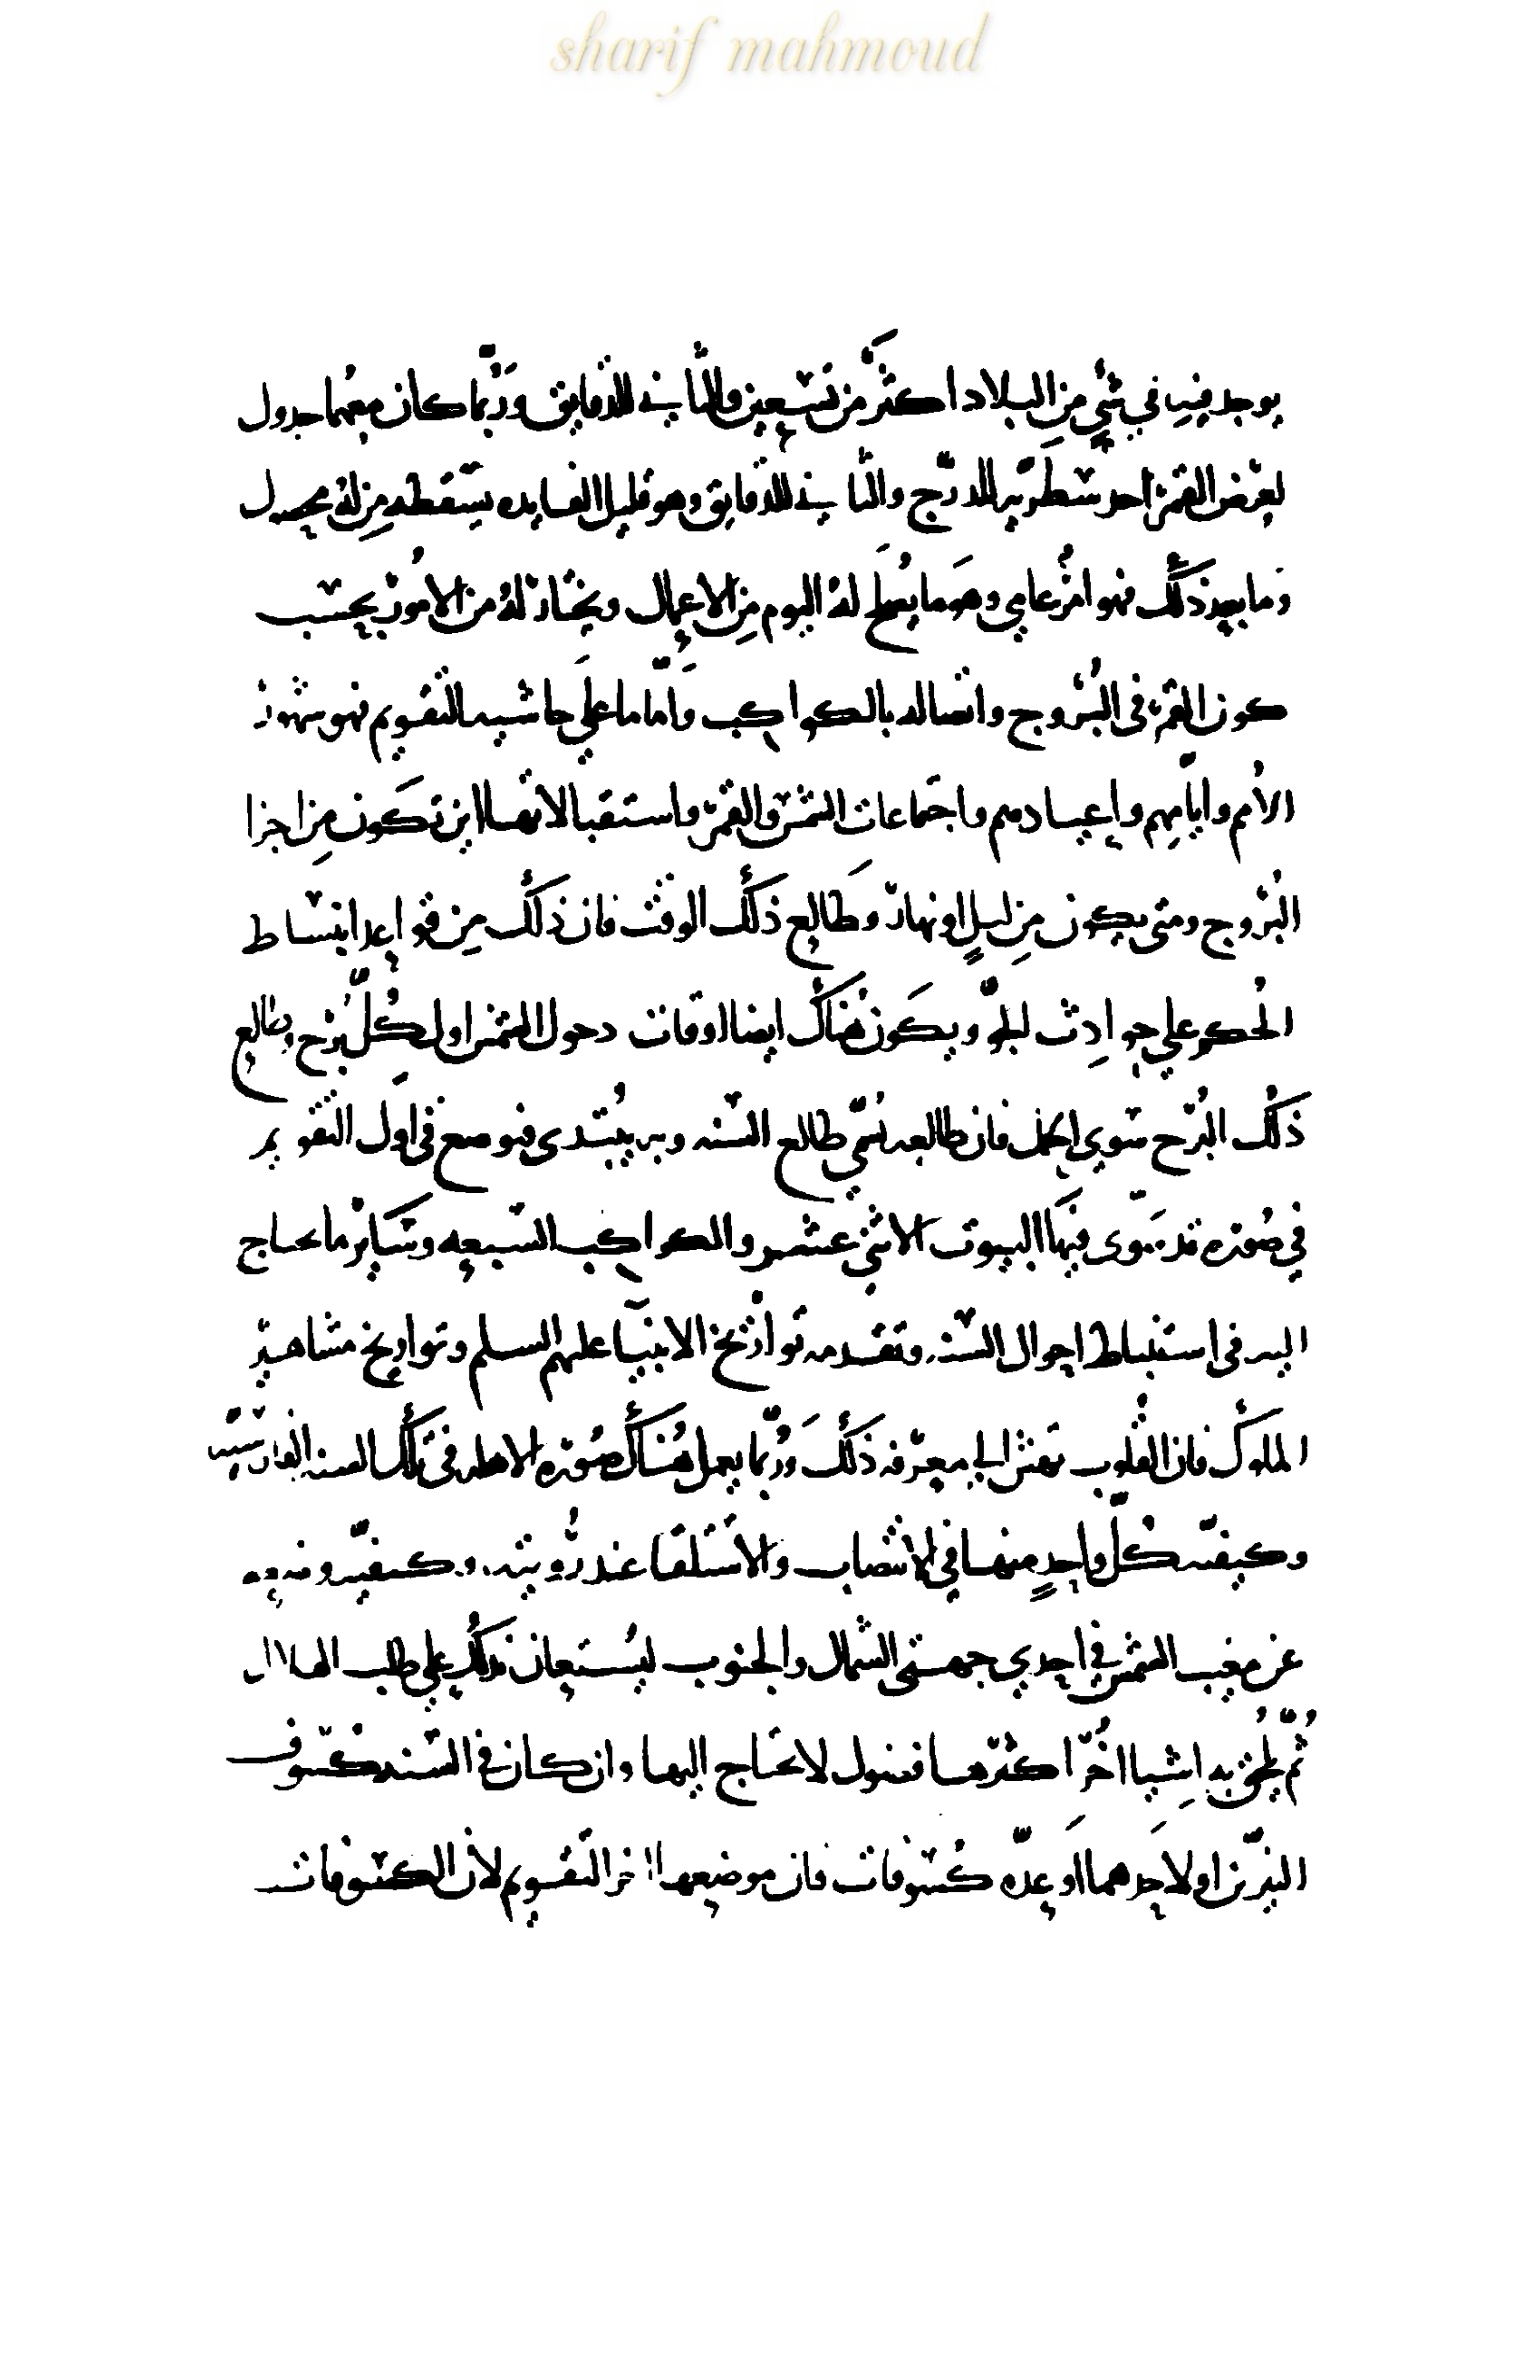 sharif mahmoud
يوجد فيه في شيءٍ مِن البلاد اكثَر من تسعين والثاني للدقايق ورُبّما كان معهُما جدول
لعرض القمر احد سطريه للدرّج والثاني للدقايق وهو قليل الفايده يسقطه مِن لهُ محصول
وما بعد ذلك فهو امرُ عامي وهوَ ما يُصلح لهُ اليوم مِن الاعمال ويختار لهُ من الامُور بحسب
كون القمر فى البُروج واتصاله بالكواكب وَامّا ما علَي حاشيه التقويم فهو شهور
الأُمم وايّامِهم واعيادهم واجتماعات الشمس والقمر واستقبالاتها اين تكَون مِن اجزا
البُرُوج ومتى يكون مِن ليلٍ او نهار وطَالع ذلَك الوقت فان ذلك مِن قواعد انبساط
الحُكم على حوادِث الجوّ ويكَون هُناك ايضا اوقات دحول الشمس اول كُلّ بُرج وطالع
ذلك البُرج سوى الحمل فان طالعه سُمّي طالع السنه وبه يُبتدى فيوضع فى اوّل التقويم
في صُورَه قد سّوى فيهَا البيوت الاثني عشر والكواكب السبعه وسَاير ما يحتاج
اليه فى استنباط احوال السنه وتقدمه تواريخ الانبيآ عليهم السلم وتواريخ مشاهير
الملوك فان القلوب تهتز الي معرفه ذلك وَرُبّما يعمل هُناك صُورَه الاهله فى تلك السنه الفارسيّه
وكيفيّه كُلّ واحدٍ منها فى الانتصاب والاستلقا عند رُؤيته وكيفيّه
عن مغيب الشمس في احدي جهتى الشمال والجنوب ليُستعان بذلك علي طلب الهلال
ثُمّ يُلحق به اشِيا اخُرَ اكثرها فضول لا يحتاج اليها وان كان فى السنه كسُوف
النيّرين او لاحَدهما او عدّه كسُوفات فان موضعها اخر التقويم لأن الكسُوفات